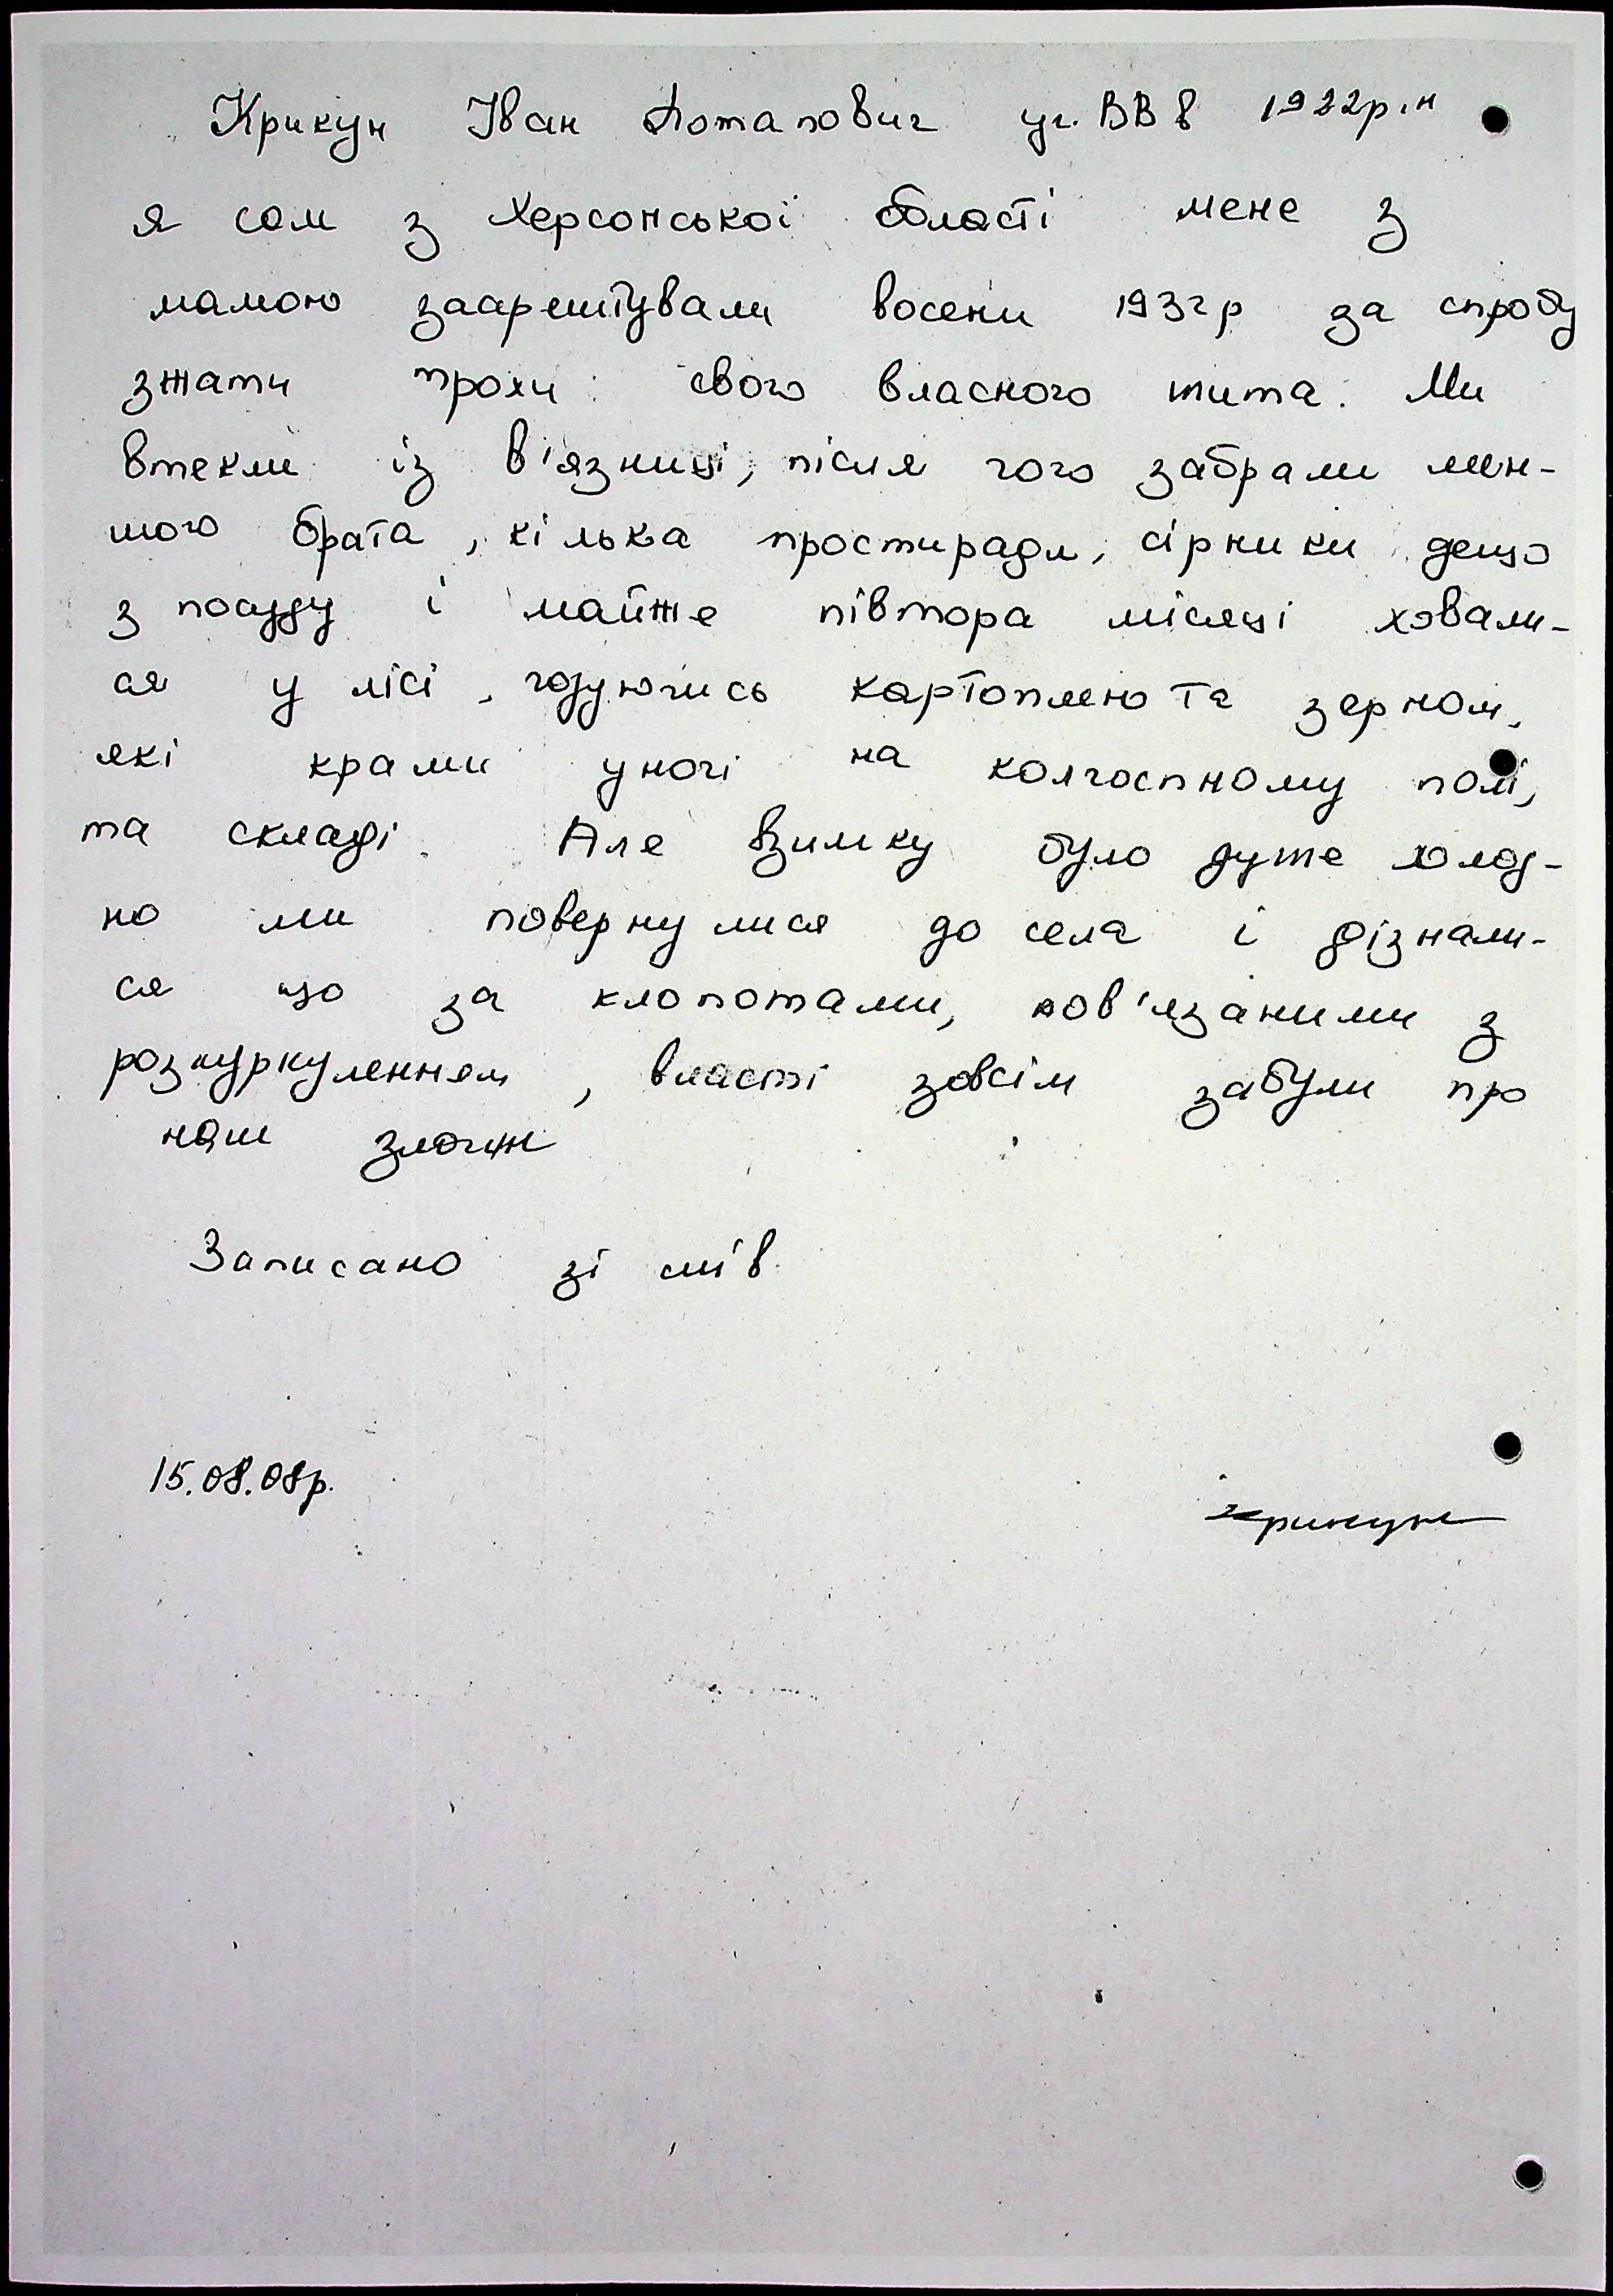 Крикун Іван Потапович уч. ВВв 1922р.н
я сам з Херсонської області мене з
мамою заарештували восени 1932р за спробу
зжати трохи свого власного жита. Ми
втекли із в'язниці, після чого забрали мен-
шого брата, кілька простирадл, сірники дещо
з посуду і майже півтора місяці ховали-
ся у лісі, годуючись картоплею та зерном,
які крали уночі на колгоспному полі,
та складі. Але взимку було дуже холод-
но ми повернулися до села і дізнали-
ся що за клопотами, пов'язаними з
розкуркуленням, власті зовсім забули про
наш злочин
Записано зі слів.
15.08.08р.
Крикун